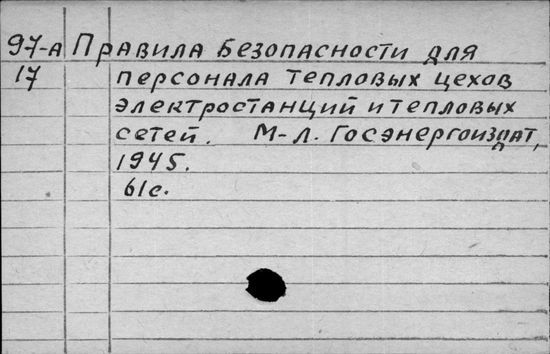 97-А Правила безопасности для
17 персонала тепловых цехов
электростанций и тепловых
сетей. М-Л. Госэнергоиздат,
1945.
61с.